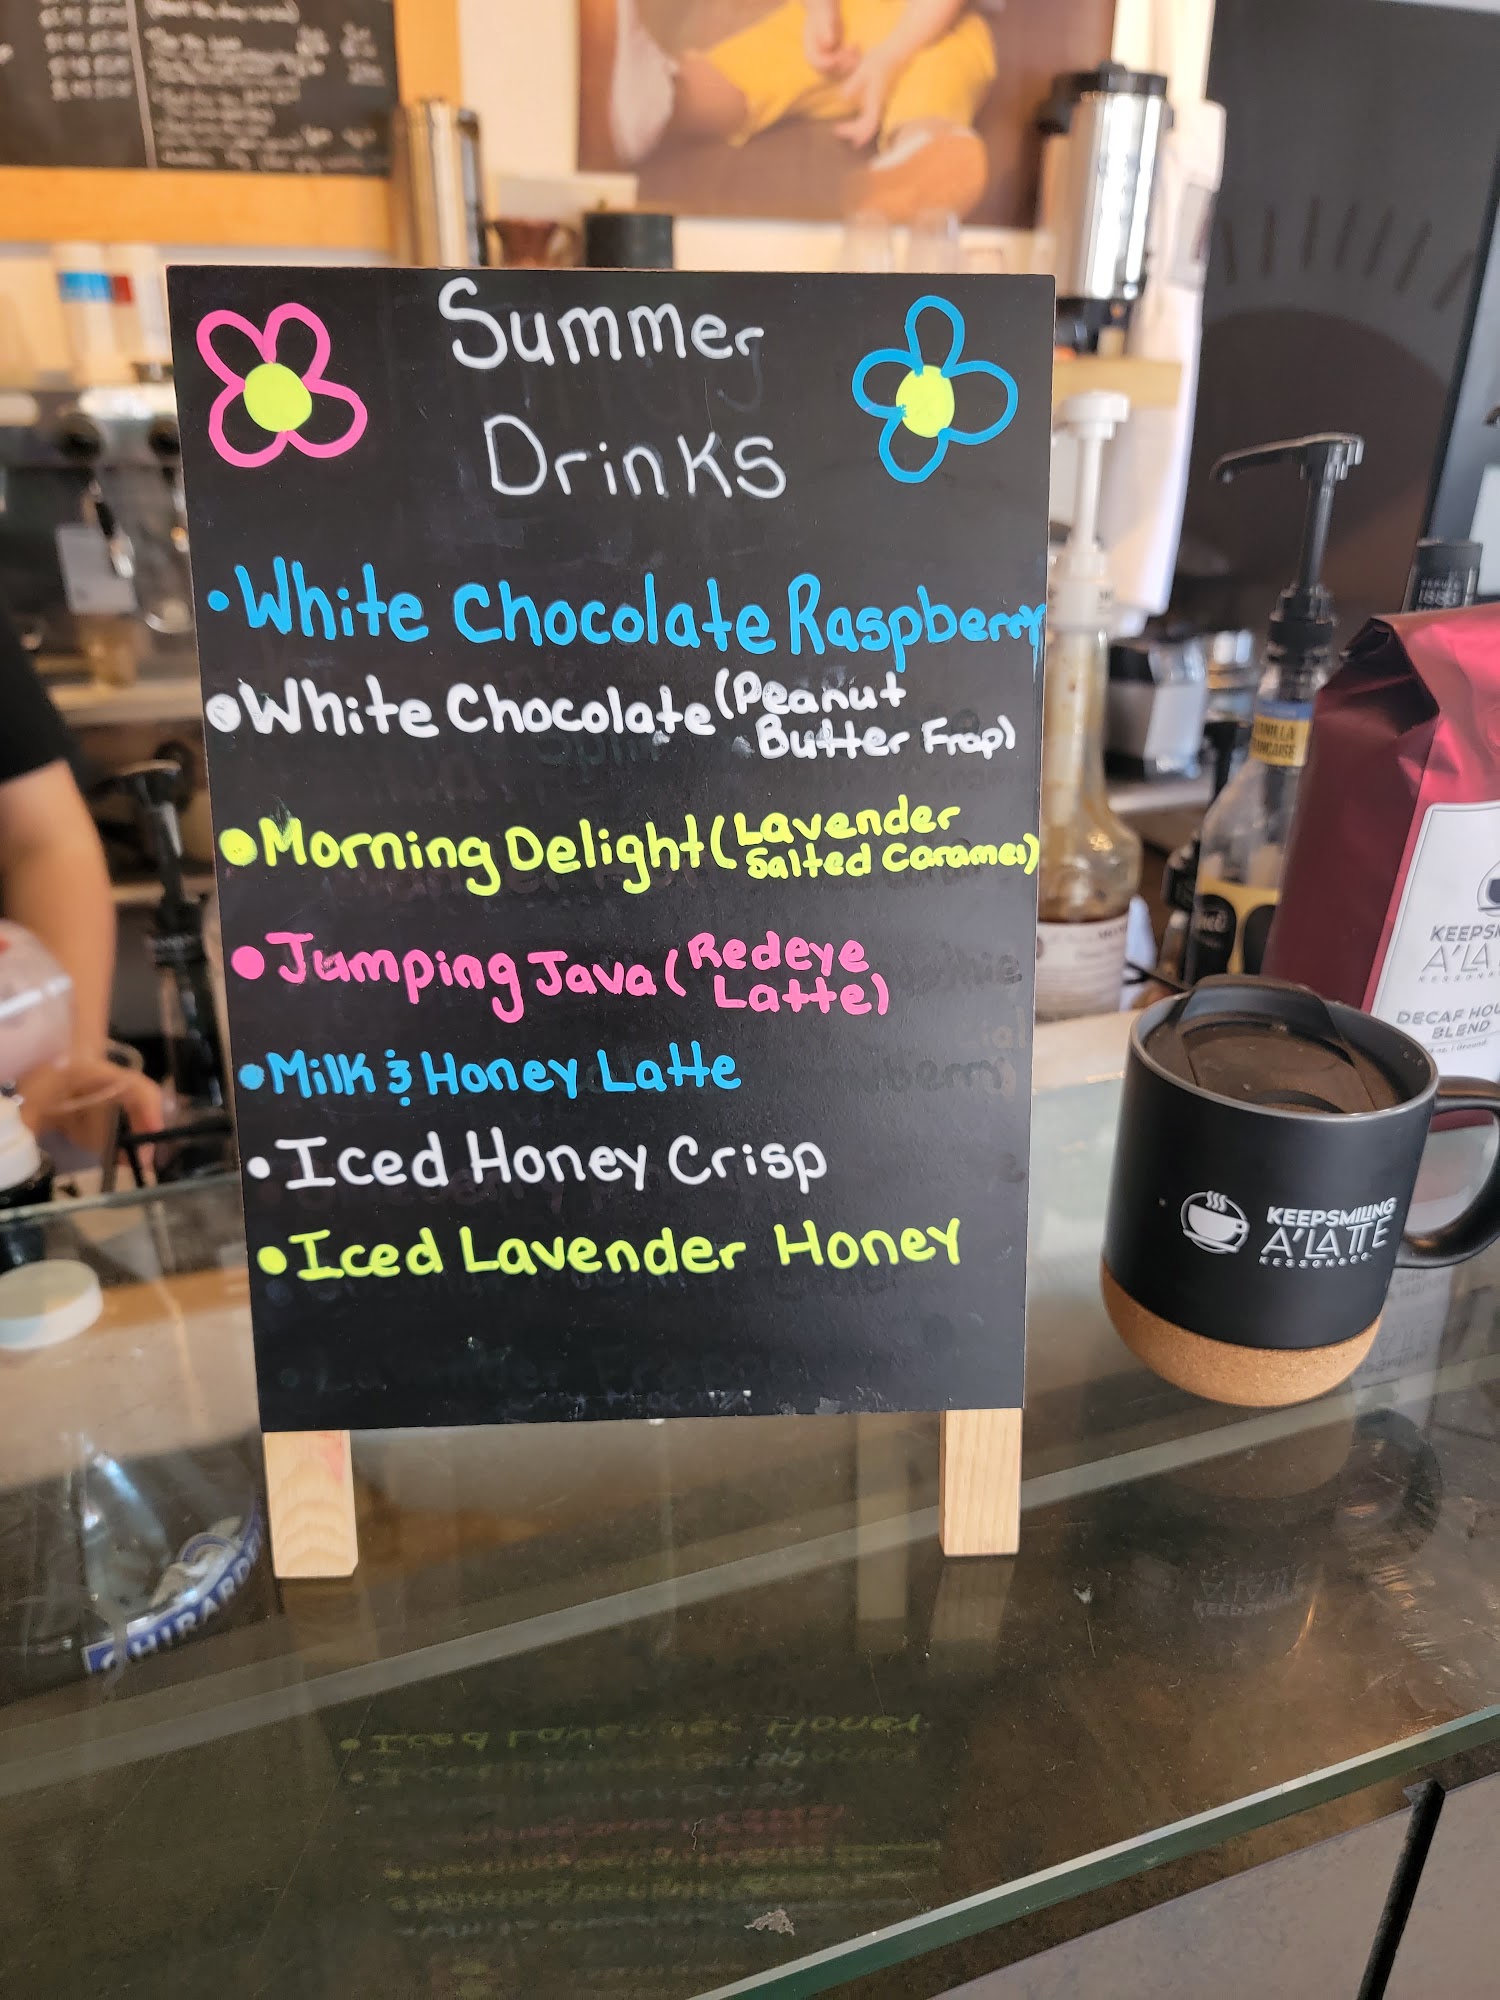 Summer
Drinks
• White Chocolate Raspberry
• White Chocolate (Peanut
Butter Frap)
• Morning Delight (Lavender
Salted Caramel)
• Jumping Java (Redeye
Latte)
• Milk & Honey Latte
• Iced Honey Crisp
• Iced Lavender Honey
KEEPSMILING
A'LATTE
KESSON&CO.
1883
VANILLA
A'LA
DECAF
BLEND